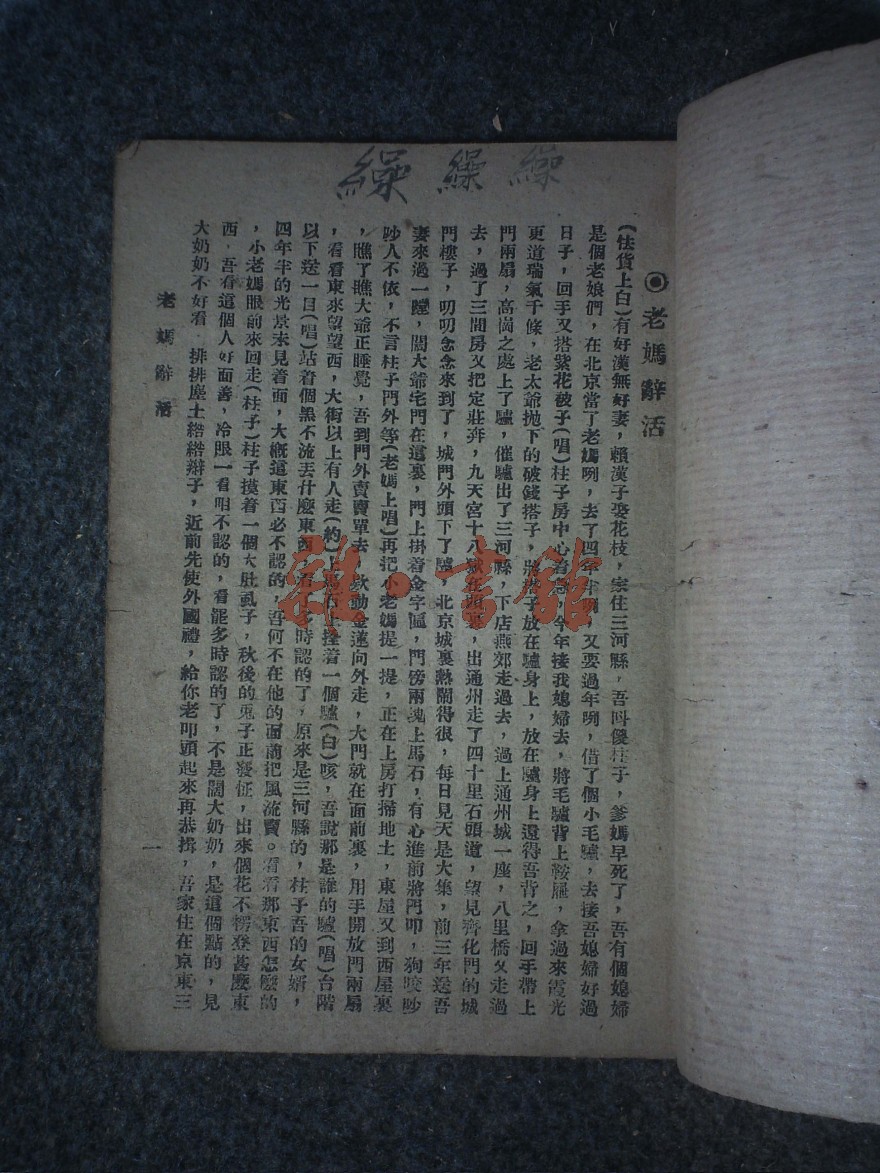 繰 繰 繰
◉老媽辭活
(怯貨上白)有好漢無好妻，賴漢子娶花枝，家住三河縣，吾叫傻柱子，爹媽早死了，吾有個媳婦
是個老娘們，在北京當了老媽咧，去了四年半咧，又要過年咧，借了個小毛驢，去接吾媳婦好過
日子，回手又搭紫花被子(唱)柱子房中心着急，今年接我媳婦去，將毛驢背上鞍屜，拿過來霞光
更道瑞氣千條，老太爺拋下的破錢搭子，將搭子放在驢身上，放在驢身上還得吾背之，回手帶上
門兩扇，高崗之處上了驢，催驢出了三河縣，下店燕郊走過去，過上通州城一座，八里橋又走過
去，過了三間房又把定莊奔，九天宮十八獄在頭裏，出通州走了四十里石頭道，望見齊化門的城
門樓子，叨叨念念來到了，城門外頭下了驢，北京城裏熱鬧得很，每日見天是大集，前三年送吾
妻來過一蹚，闊大爺宅門在這裏，門上掛着金字匾，門傍兩塊上馬石，有心進前將門叩，狗咬吵
吵人不依，不言柱子門外等(老媽上唱)再把小老媽提一提，正在上房打掃地土，東屋又到西屋裏
，瞧了瞧大爺正睡覺，吾到門外賣賣單去，欵動金蓮向外走，大門就在面前裏，用手開放門兩扇
，看看東來望望西，大街以上有人走(約)上馬石上拴着一個驢(白)咳，吾說那是誰的驢(唱)台階
以下送一目(唱)站着個黑不流丟什麼東西，時認的了，原來是三河縣的，柱子吾的女婿，
四年半的光景未見着面，大概這東西必不認的，吾何不在他的面前把風流賣。看看那東西怎麼的
，小老媽眼前來回走(柱子)柱子摸着一個大肚虱子，秋後的兎子正發怔，出來個花不楞登甚麼東
西，吾看這個人好面善，冷眼一看咱不認的，看罷多時認的了，不是闊大奶奶，是這個點的，見
大奶奶不好看，排排塵土綹綹辮子，近前先使外國禮，給你老叩頭起來再恭揖，吾家住在京東三
老媽辭活
一
雜·書館